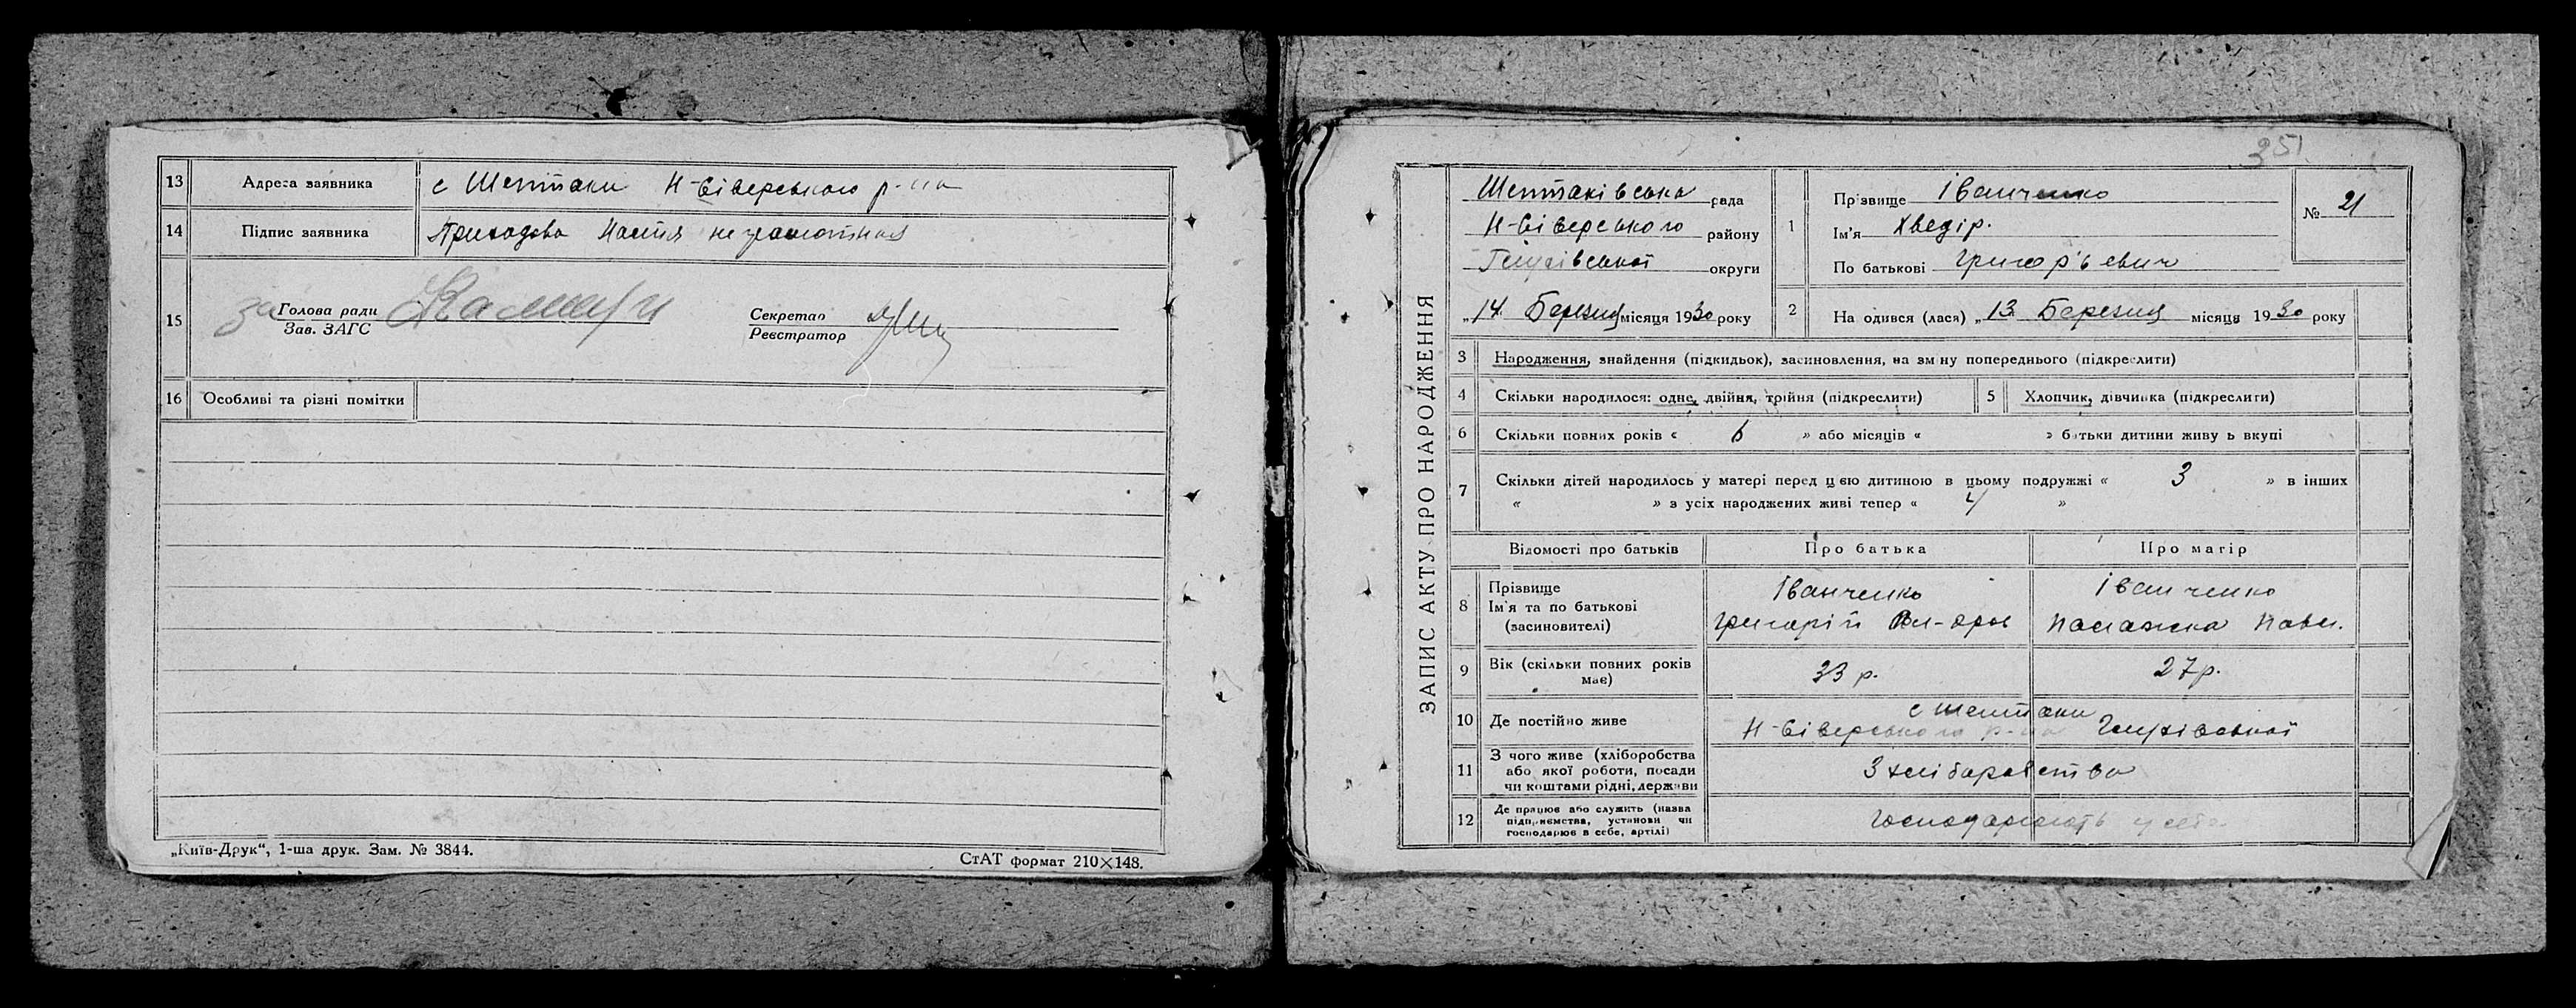 13 Адреса заявника с Шептаки Н-Сіверського р-на
14 Підпис заявника Приходова Настя неграмотная
15 за Голова ради
Зав. ЗАГС
Секретар
Реєстратор
16 Особливі та різні помітки
„Київ-Друк“, 1-ша друк. Зам. № 3844.
СтАТ формат 210×148.
351
ЗАПИС АКТУ ПРО НАРОДЖЕННЯ
Шептаківська рада
Н-Сіверського району
Глухівської округи
„14 Березня місяця 1930 року
1 Прізвище Іванченко
Ім'я Хведір.
По батькові Григор'євич
№ 21
2 Народився (лася) „13 Березня місяця 1930 року
3 Народження, знайдення (підкидьок), засиновлення, на зміну попереднього (підкреслити)
4 Скільки народилося: одне, двійня, трійня (підкреслити)
5 Хлопчик, дівчинка (підкреслити)
6 Скільки повних років « 6 » або місяців « » батьки дитини живуть вкупі
7 Скільки дітей народилось у матері перед цією дитиною в цьому подружжі « 3 » в інших
« » з усіх народжених живі тепер « 4 »
Відомості про батьків Про батька Про матір
8 Прізвище
Ім'я та по батькові
(засиновителі)
Іванченко
Григорій
Іванченко
Палажка Павл.
9 Вік (скільки повних років
має)
33 р.
27 р.
10 Де постійно живе
с Шептаки
Н-Сіверського р-на Глухівської
11 З чого живе (хліборобства
або якої роботи, посади
чи коштами рідні, держави
З хліборобства
12 Де працює або служить (назва
підприємства, установи чи
господарює в себе, артілі)
Господарюють у себе